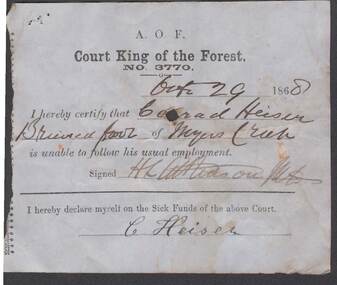 A. O. F.
Court King of the Forest.
NO. 3770.
Oct 29 1868
I hereby certify that Conrad Heiser
Bruised foot of Myers Creek
is unable to follow his usual employment.
Signed
I hereby declare myself on the Sick Funds of the above Court.
C Heiser